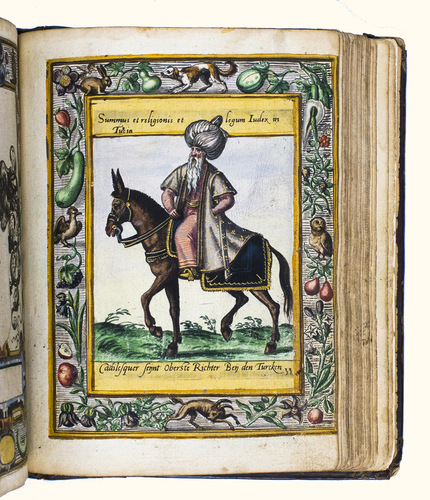 Summus et religionis et legum Iudex in
Turcia
Cadilesquer seynt Oberste Richter Beÿ den Turcken